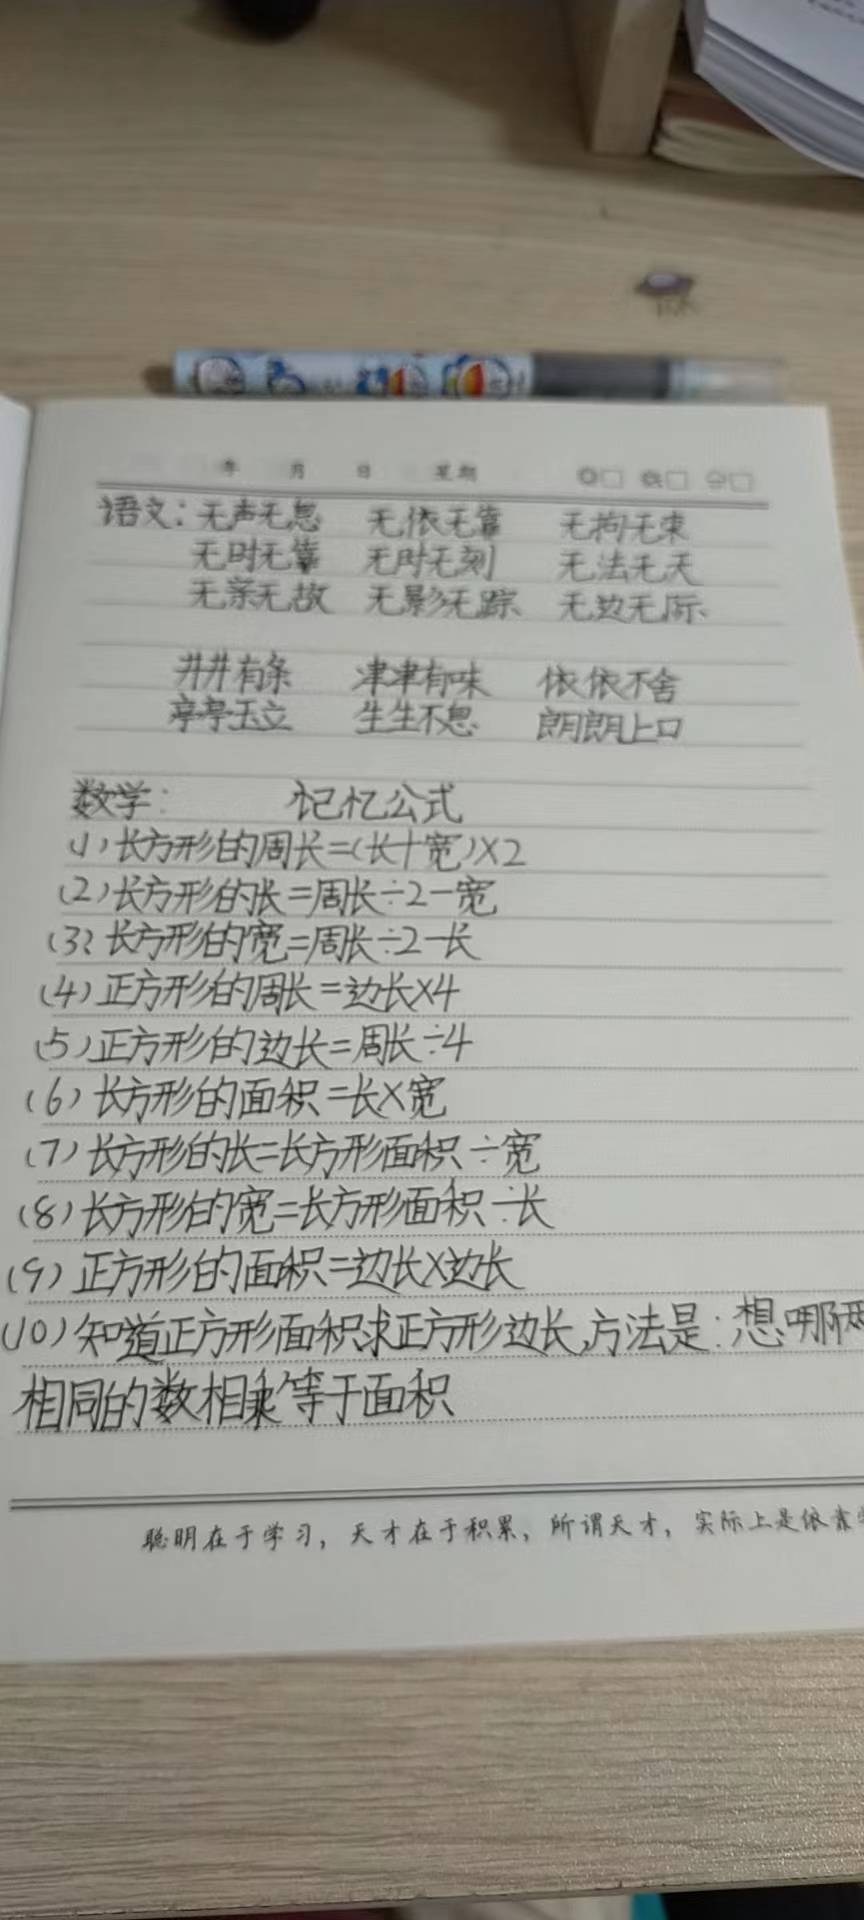 年 月 日 星期
语文：无声无息 无依无靠 无拘无束
无时无靠 无时无刻 无法无天
无亲无故 无影无踪 无边无际
井井有条 津津有味 依依不舍
亭亭玉立 生生不息 朗朗上口
数学： 记忆公式
(1)长方形的周长=(长+宽)×2
(2)长方形的长=周长÷2-宽
(3)长方形的宽=周长÷2-长
(4)正方形的周长=边长×4
(5)正方形的边长=周长÷4
(6)长方形的面积=长×宽
(7)长方形的长=长方形面积÷宽
(8)长方形的宽=长方形面积÷长
(9)正方形的面积=边长×边长
(10)知道正方形面积求正方形边长,方法是:想哪两
相同的数相乘等于面积
聪明在于学习，天才在于积累，所谓天才，实际上是依靠